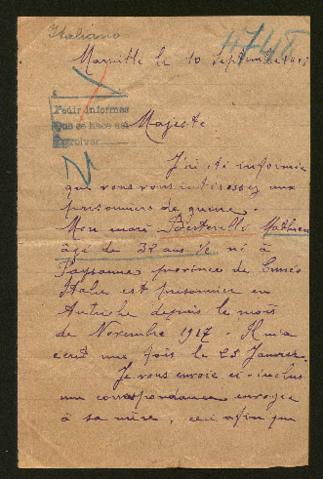 Italiano
4748
Marseille le 10 septembre 1918
Pedir informes
Que se hace así
Majesté
J'ai été informée
que vous vous intéressez aux
prisonniers de guerre.
Mon mari Berterello Mathieu
âgé de 32 ans ½ né à
Paysanne province de Cuneo
Italie est prisonnier en
Autriche depuis le mois
de Novembre 1917. Il m'a
écrit une fois le 25 Janvier.
Je vous envoie ci-inclus
une correspondance envoyée
à sa mère, ceci afin que